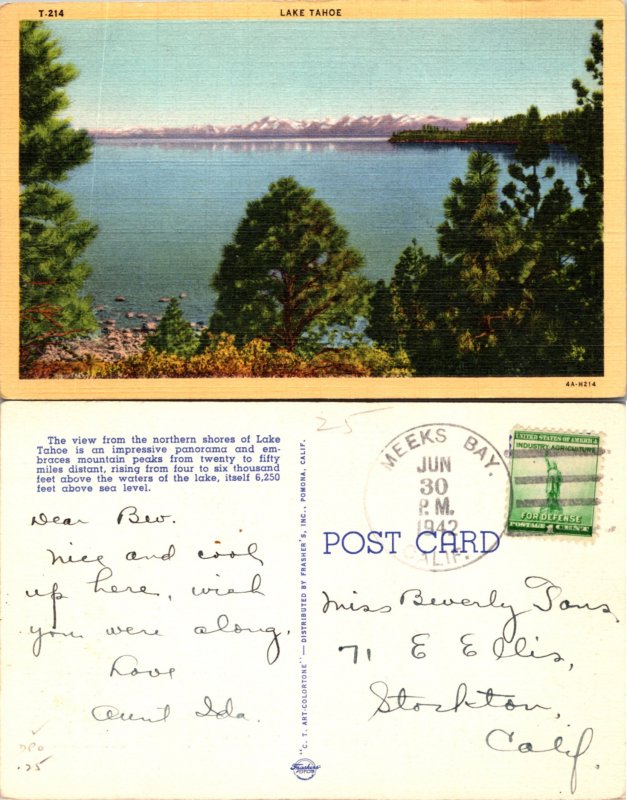 T-214
LAKE TAHOE
4A-H214
The view from the northern shores of Lake
Tahoe is an impressive panorama and em-
braces mountain peaks from twenty to fifty
miles distant, rising from four to six thousand
feet above the waters of the lake, itself 6,250
feet above sea level.
Dear Bev.
Nice and cool
up here, wish
you were along.
Love
Aunt Ida.
DPO
.25
"C. T. ART-COLORTONE" — DISTRIBUTED BY FRASHER'S, INC., POMONA, CALIF.
Frashers
FOTOS
25
MEEKS BAY.
JUN
30
P.M.
1942
CALIF.
UNITED STATES OF AMERICA
INDUSTRY AGRICULTURE
FOR DEFENSE
POSTAGE 1 CENT
POST CARD
Miss Beverly
71 E Ellis,
Stockton,
Calif